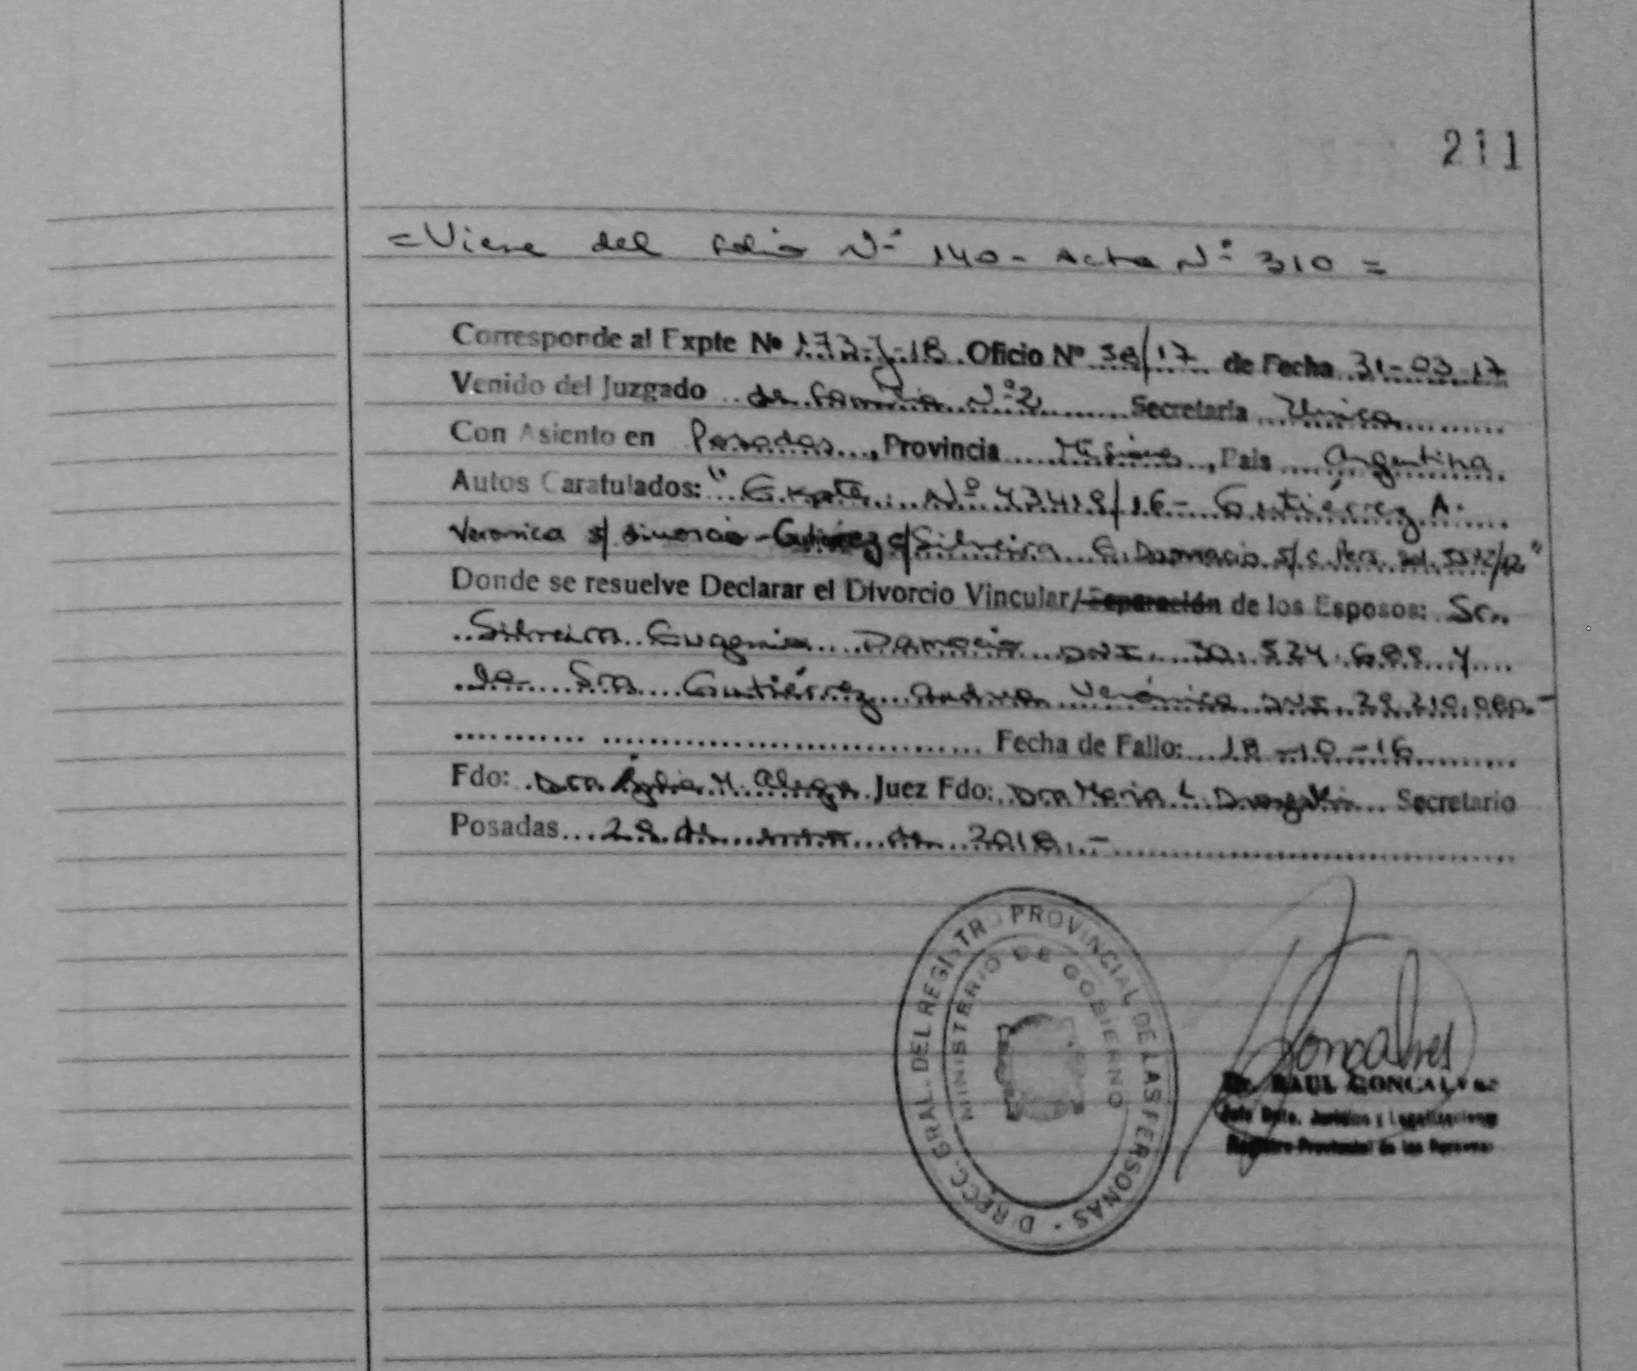 211
=Viene del folio Nº 140- Acta Nº 310=
Corresponde al Expte Nº 173-J-18 Oficio Nº /17 de Fecha 31-03-17
Venido del Juzgado de Familia Nº2 Secretaria Unica
Con Asiento en Posadas, Provincia Misiones, Pais Argentina
Autos Caratulados: "Expte. Nº 43418/16- Gutiérrez A.
Veronica s/ divorcio - Gutiérrez c/Silveira E. Damacio s/c. Pers.
Donde se resuelve Declarar el Divorcio Vincular/Separación de los Esposos: Sr.
Silveira Eugenio Damacio DNI. 30.524.688 y
la Sra Gutiérrez Andrea Verónica DNI 28.210.080.-
Fecha de Fallo: 18-10-16
Fdo: Dra M. Juez Fdo: Dra Maria L. Secretario
Posadas 29 de de 2018.-
DIRECC. GRAL. DEL REGISTRO PROVINCIAL DE LAS PERSONAS -
MINISTERIO DE GOBIERNO
Goncalves
Dr. RAUL GONCALVES
Jefe Dpto. Jurídico y Legalizaciones
Registro Provincial de las Personas